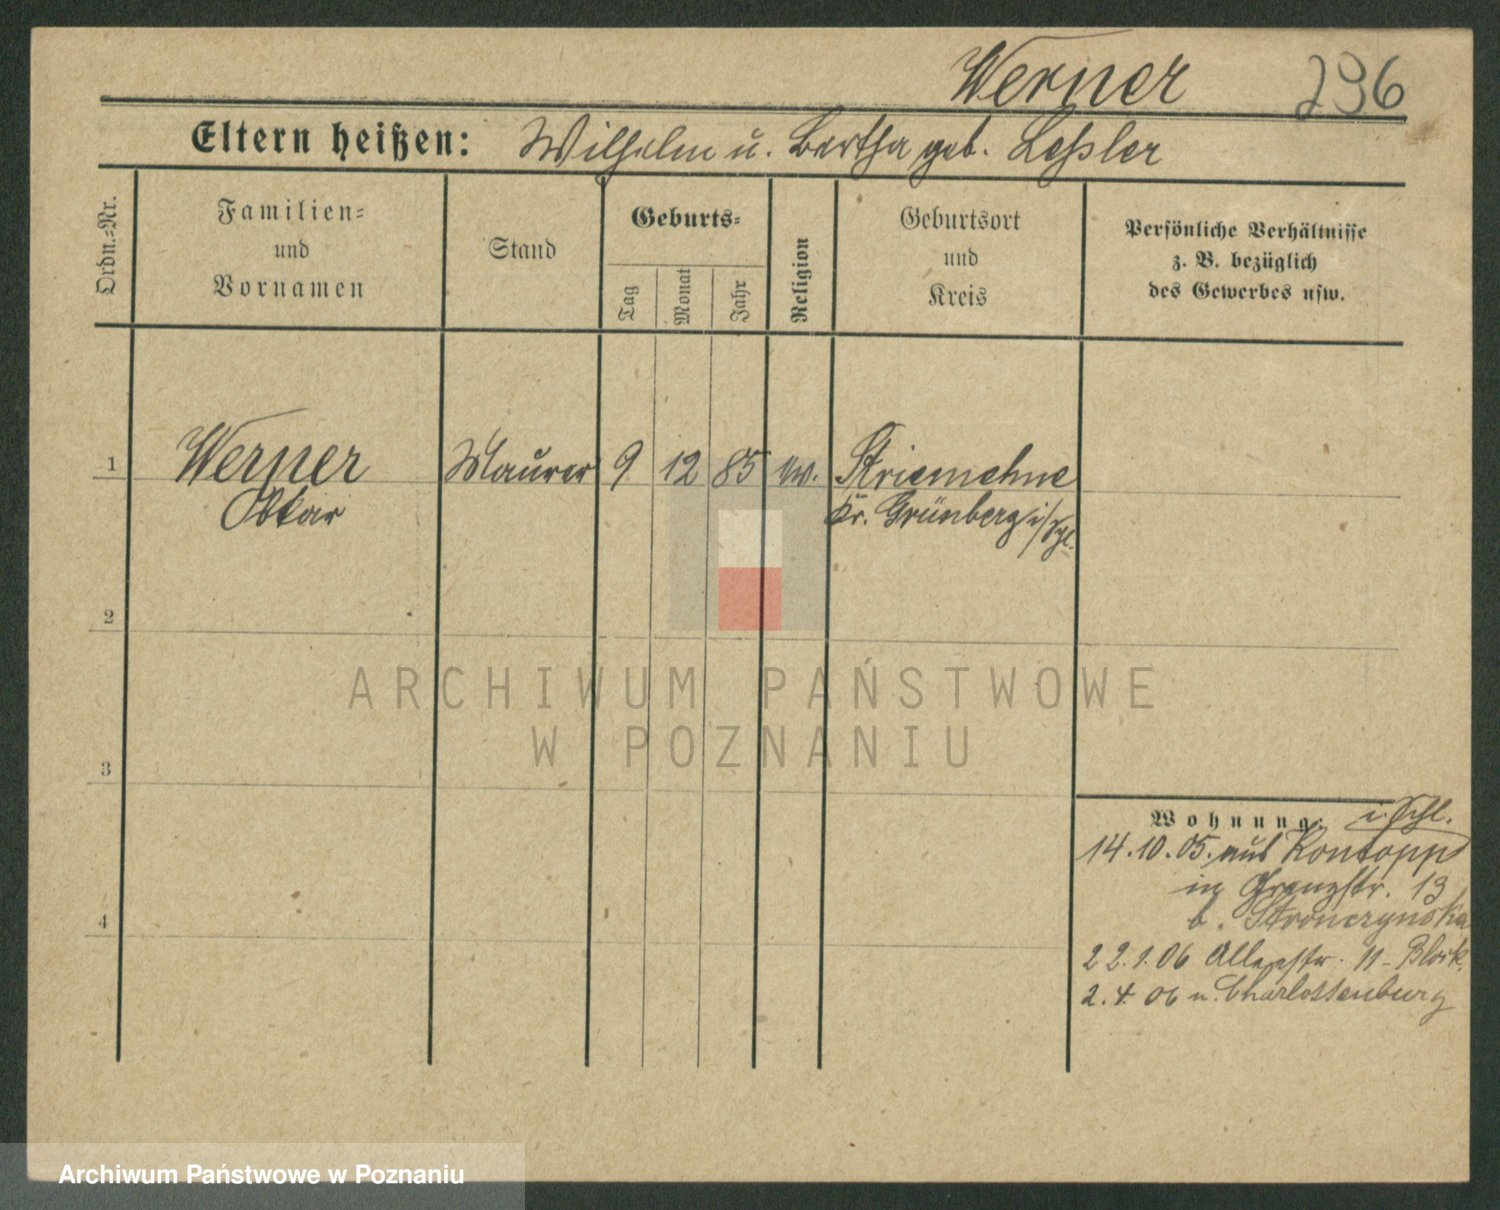 Werner 296
Eltern heißen: Wilhelm u. Bertha geb. Leßler
Ordn.=Nr.
Familien=
und
Vornamen
Stand
Geburts=
Tag
Monat
Jahr
Religion
Geburtsort
und
Kreis
Persönliche Verhältnisse
z. B. bezüglich
des Gewerbes usw.
1 Werner Maurer 9 12 85 ev. Striemehne
Oskar Kr. Grünberg i/Schl.
2
3
4
Wohnung: i. Schl.
14.10.05. aus Kontopp
in Grenzstr. 13
b. Stronczynska
22.1.06 Alleestr. 11 - Block.
2.4.06 n. Charlottenburg
ARCHIWUM PAŃSTWOWE
W POZNANIU
Archiwum Państwowe w Poznaniu